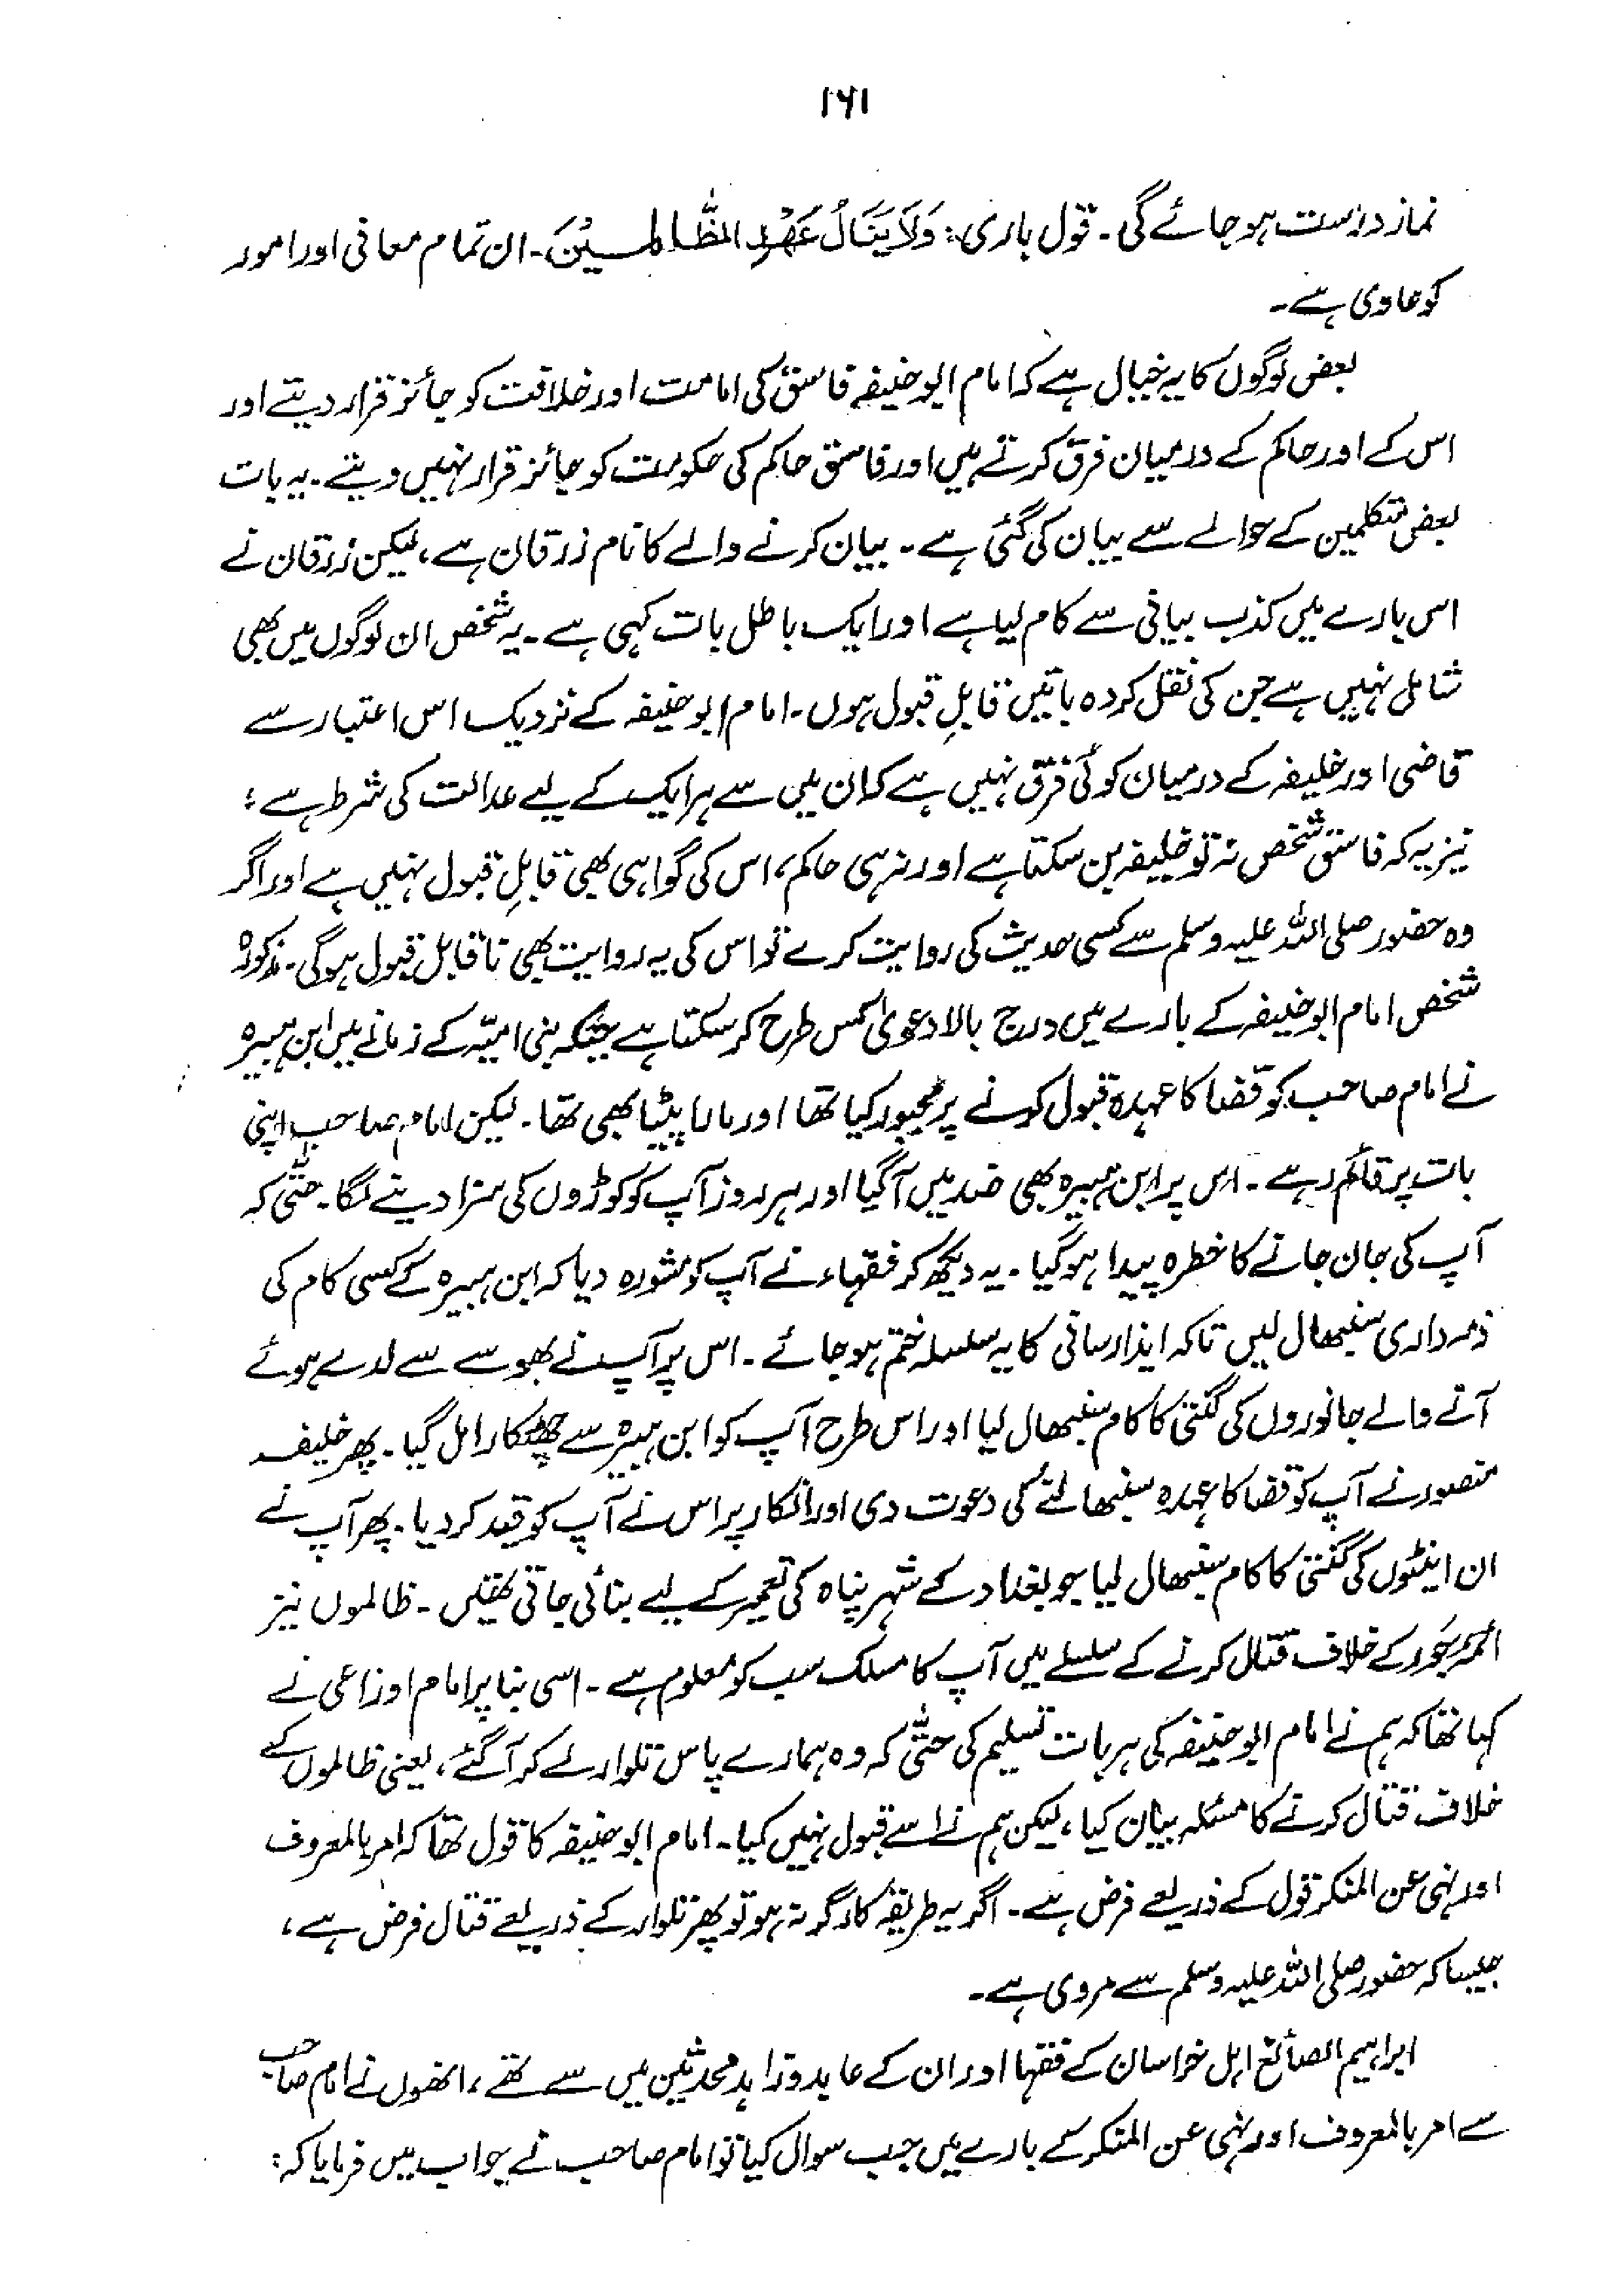 ۱۶۱
نماز درست ہو جائے گی۔ قول باری: وَلَا يَنَالُ عَهْدِ الظَّالِمِيْنَ۔ ان تمام معانی اور امور
کو حاوی ہے۔
بعض لوگوں کا یہ خیال ہے کہ امام ابو حنیفہ فاسق کی امامت اور خلافت کو جائز قرار دیتے اور
اس کے اور حاکم کے درمیان فرق کرتے ہیں اور فاسق حاکم کی حکومت کو جائز قرار نہیں دیتے۔ یہ بات
بعض متکلمین کے حوالے سے بیان کی گئی ہے۔ بیان کرنے والے کا نام زرقان ہے، لیکن زرقان نے
اس بارے میں کذب بیانی سے کام لیا ہے اور ایک باطل بات کہی ہے۔ یہ شخص ان لوگوں میں بھی
شامل نہیں ہے جن کی نقل کردہ باتیں قابلِ قبول ہوں۔ امام ابو حنیفہ کے نزدیک اس اعتبار سے
قاضی اور خلیفہ کے درمیان کوئی فرق نہیں ہے کہ ان میں سے ہر ایک کے لیے عدالت کی شرط ہے؛
نیز یہ کہ فاسق شخص نہ تو خلیفہ بن سکتا ہے اور نہ ہی حاکم، اس کی گواہی بھی قابلِ قبول نہیں ہے اور اگر
وہ حضور صلی اللہ علیہ وسلم سے کسی حدیث کی روایت کرے تو اس کی یہ روایت بھی ناقابل قبول ہوگی۔ مذکورہ
شخص امام ابو حنیفہ کے بارے میں درج بالا دعویٰ کس طرح کر سکتا ہے جبکہ بنی امیّہ کے زمانے میں ابن ہبیرہ
نے امام صاحب کو قضا کا عہدہ قبول کرنے پر مجبور کیا تھا اور مارا پیٹا بھی تھا۔ لیکن امام صاحب اپنی
بات پر قائم رہے۔ اس پر ابن ہبیرہ بھی ضد میں آگیا اور ہر روز آپ کو کوڑوں کی سزا دینے لگا۔ حتّٰی کہ
آپ کی جان جانے کا خطرہ پیدا ہو گیا۔ یہ دیکھ کر فقہاء نے آپ کو مشورہ دیا کہ ابن ہبیرہ کے کسی کام کی
ذمہ داری سنبھال لیں تاکہ ایذا رسانی کا یہ سلسلہ ختم ہو جائے۔ اس پر آپ نے بھوسے سے لدے ہوئے
آنے والے جانوروں کی گنتی کا کام سنبھال لیا اور اس طرح آپ کو ابن ہبیرہ سے چھٹکارا مل گیا۔ پھر خلیفہ
منصور نے آپ کو قضا کا عہدہ سنبھالنے کی دعوت دی اور انکار پر اس نے آپ کو قید کر دیا۔ پھر آپ نے
ان اینٹوں کی گنتی کا کام سنبھال لیا جو بغداد کے شہر پناہ کی تعمیر کے لیے بنائی جاتی تھیں۔ ظالموں نیز
ائمہ جَور کے خلاف قتال کرنے کے سلسلے میں آپ کا مسلک سب کو معلوم ہے۔ اسی بنا پر امام اوزاعی نے
کہا تھا کہ ہم نے امام ابو حنیفہ کی ہر بات تسلیم کی حتّٰی کہ وہ ہمارے پاس تلوار لے کر آگئے، یعنی ظالموں کے
خلاف قتال کرنے کا مسئلہ بیان کیا، لیکن ہم نے اسے قبول نہیں کیا۔ امام ابو حنیفہ کا قول تھا کہ امر بالمعروف
اور نہی عن المنکر قول کے ذریعے فرض ہے۔ اگر یہ طریقہ کارگر نہ ہو تو پھر تلوار کے ذریعے قتال فرض ہے،
جیسا کہ حضور صلی اللہ علیہ وسلم سے مروی ہے۔
ابراہیم الصائغ اہل خراسان کے فقہا اور ان کے عابد و زاہد محدثین میں سے تھے، انھوں نے امام صاحب
سے امر بالمعروف اور نہی عن المنکر کے بارے میں جب سوال کیا تو امام صاحب نے جواب میں فرمایا کہ: